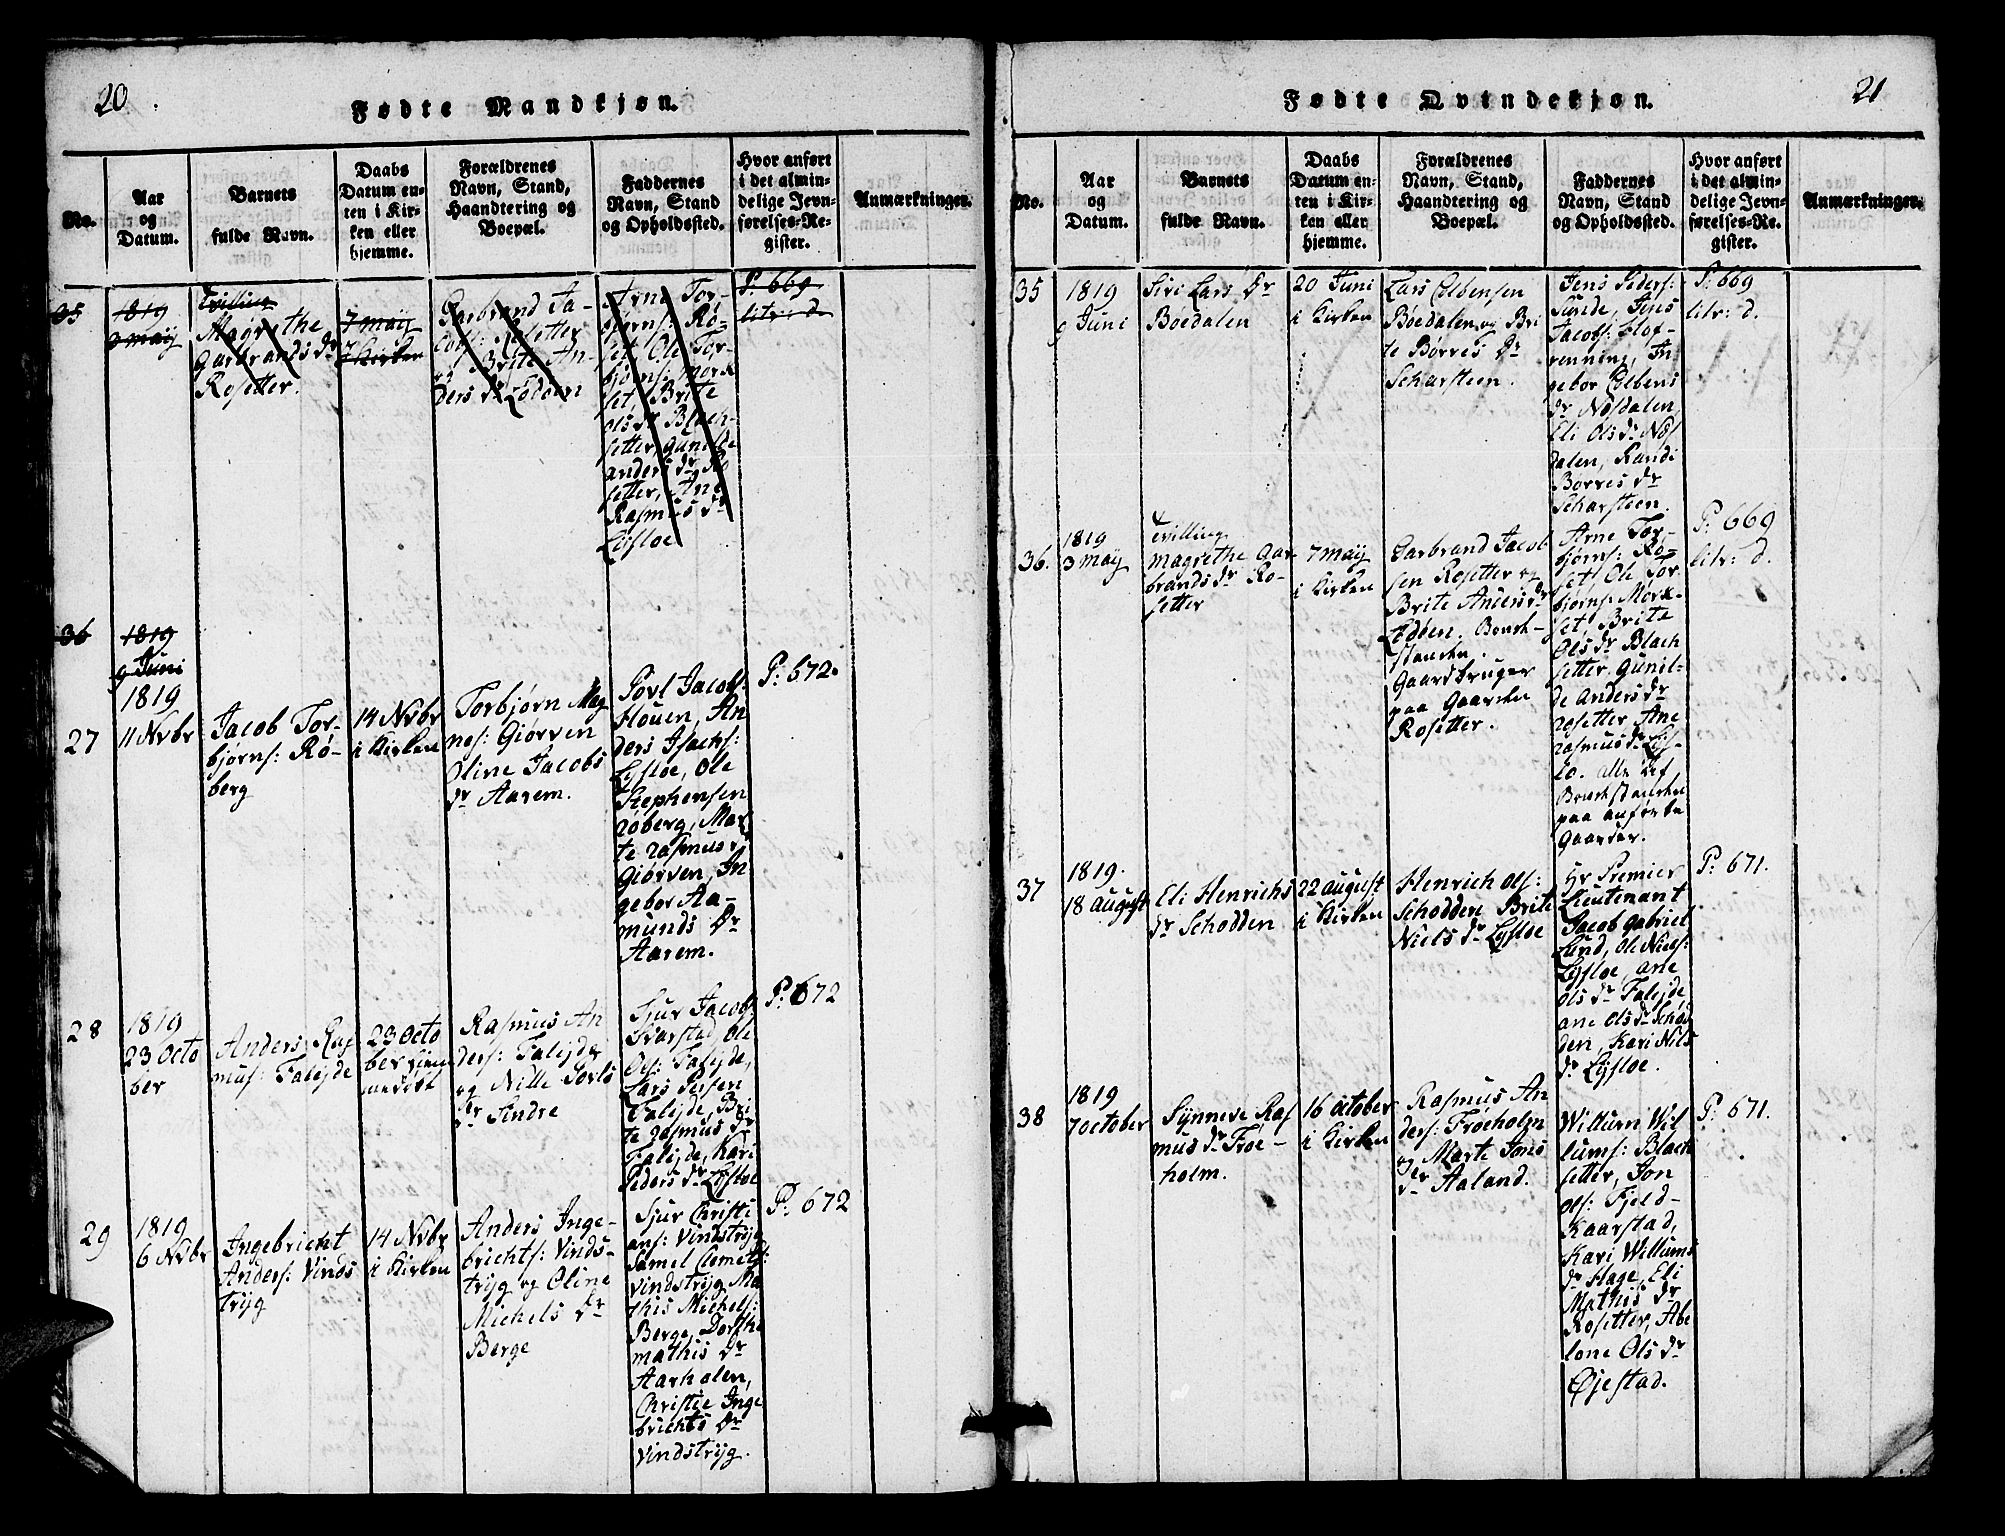 20.
Fødte Mandkjøn.
No.
Aar
og
Datum.
Barnets
fulde Navn.
Daabs
Datum en-
ten i Kir-
ken eller
hjemme.
Forældrenes
Navn, Stand,
Haandtering og
Boepæl.
Faddernes
Navn, Stand
og Opholdssted.
Hvor anført
i det almin-
delige Jevn-
førelses-Re-
gister.
Anmærkninger.
35
1819
3 maÿ
Tvilling
Magrethe
Garbrands dr
Rosetter.
7 maÿ
i Kirken
Garbrand Ja-
cobs: Rosetter
og Brite An-
ders dr Lødøen
Arne Tor-
bjørns: Rø-
set, Ole Tor-
bjørns: Mork-
set, Brite
Ols dr Blach-
setter, Gunilde
anders dr Ro
setter, Ane
Rasmus dr
Lÿsloe
P: 669
litr: d.
36
1819
9 Juni
27
1819
11 Nvbr
Jacob Tor-
bjørns: Rø-
berg
14 Nvbr
i Kirken
Torbjørn Mag
nes: Giørven
Oline Jacobs
dr Aarem.
Povl Jacobs:
Houen, An
ders Isachs:
Lÿsloe, Ole
Stephensen
røberg, Mar
te rasmus dr
Giørven, In
gebor Aa-
munds dr
Aarem.
P: 672.
28
1819
23 Octo
ber
Anders Ras
mus: Taleÿde
23 Octo
ber hjem
medøbt
Rasmus An
ders: Taleÿde
og Nille Povls
dr Sindre
Sjur Jacobs:
Svarstad, Ole
Ols: Taleÿde,
Lars Persen
Taleÿde, Bri
te rasmus dr
Taleÿde, Kari
Peders dr Lÿsloe
P: 672
29
1819
6 Nvbr
Ingebricht
Anders: Vinds
trÿg
14 Nvbr
i Kirken
Anders Inge-
brichts: Vinds-
trÿg og Oline
Michels dr
Berge
Sjur Christi
ans: Vindstrÿg
Samel Clemets:
Vindstrÿg Ma
this Michels:
Berge, Dorthe
mathis dr
Aarholen,
Christie Inge
brichts dr
Vindstrÿg.
P: 672
21
Fødte Qvindekjøn.
No.
Aar
og
Datum.
Barnets
fulde Navn.
Daabs
Datum en-
ten i Kir-
ken eller
hjemme.
Forældrenes
Navn, Stand,
Haandtering og
Boepæl.
Faddernes
Navn, Stand
og Opholdssted.
Hvor anført
i det almin-
delige Jevn-
førelses-Re-
gister.
Anmærkninger.
35
1819
9 Juni
Siri Lars dr
Bøedalen
20 Juni
i Kirken
Lars Colbensen
Bøedalen og Bri
te Børres dr
Scharsteen.
Jens Peders:
Sunde, Jens
Jacobs: Flof-
renning, In
gebor Colbens
dr Nosdalen,
Eli Ols dr Nos
dalen, Randi
Børres dr
Scharsteen.
P: 669
litr: d.
36.
1819
3 maÿ
Tvilling
magrethe Gar
brands dr Ro-
setter
7 maÿ
i Kirken
Garbrand Jacob
sen Rosetter og
Brite Anders dr
Lødøen. Bonde-
standen.
Gaardbruger
paa Gaarden
Rosetter.
Arne Tor-
bjørns: Rø-
set, Ole Tor
bjørns: Mork-
set, Brite
Ols dr Blach
setter, Gunil-
de anders dr
rosetter Ane
rasmus dr Lÿs-
lo. alle af
Bondestanden
paa anførte
Gaarder.
P: 669
litr: d.
37
1819.
18 august
Eli Henrichs
dr Schodden
22 august
i Kirken
Henrich Ols:
Schodden Brite
Niels dr Lÿsloe
Hr Premier
Lieutenant
Jacob Gabriel
Lund, Ole Niels:
Lÿsloe, ane
ols dr Taleÿde,
ane ols dr Schod
den, Kari Nils
dr Lÿsloe.
P: 671.
38
1819
7 October
Sÿnneve Ras
mus dr Frøe-
holm.
16 october
i Kirken
Rasmus An
ders: Frøeholm
og Marte Jons
dr Aaland.
Willum Wil
lums: Blach
setter, Jon
ols: Fjeld-
Kaarstad,
Kari Willums
dr Hage, Eli
Mathis dr
Rosetter, Abe
lone Ols dr
Øjestad.
P: 671.